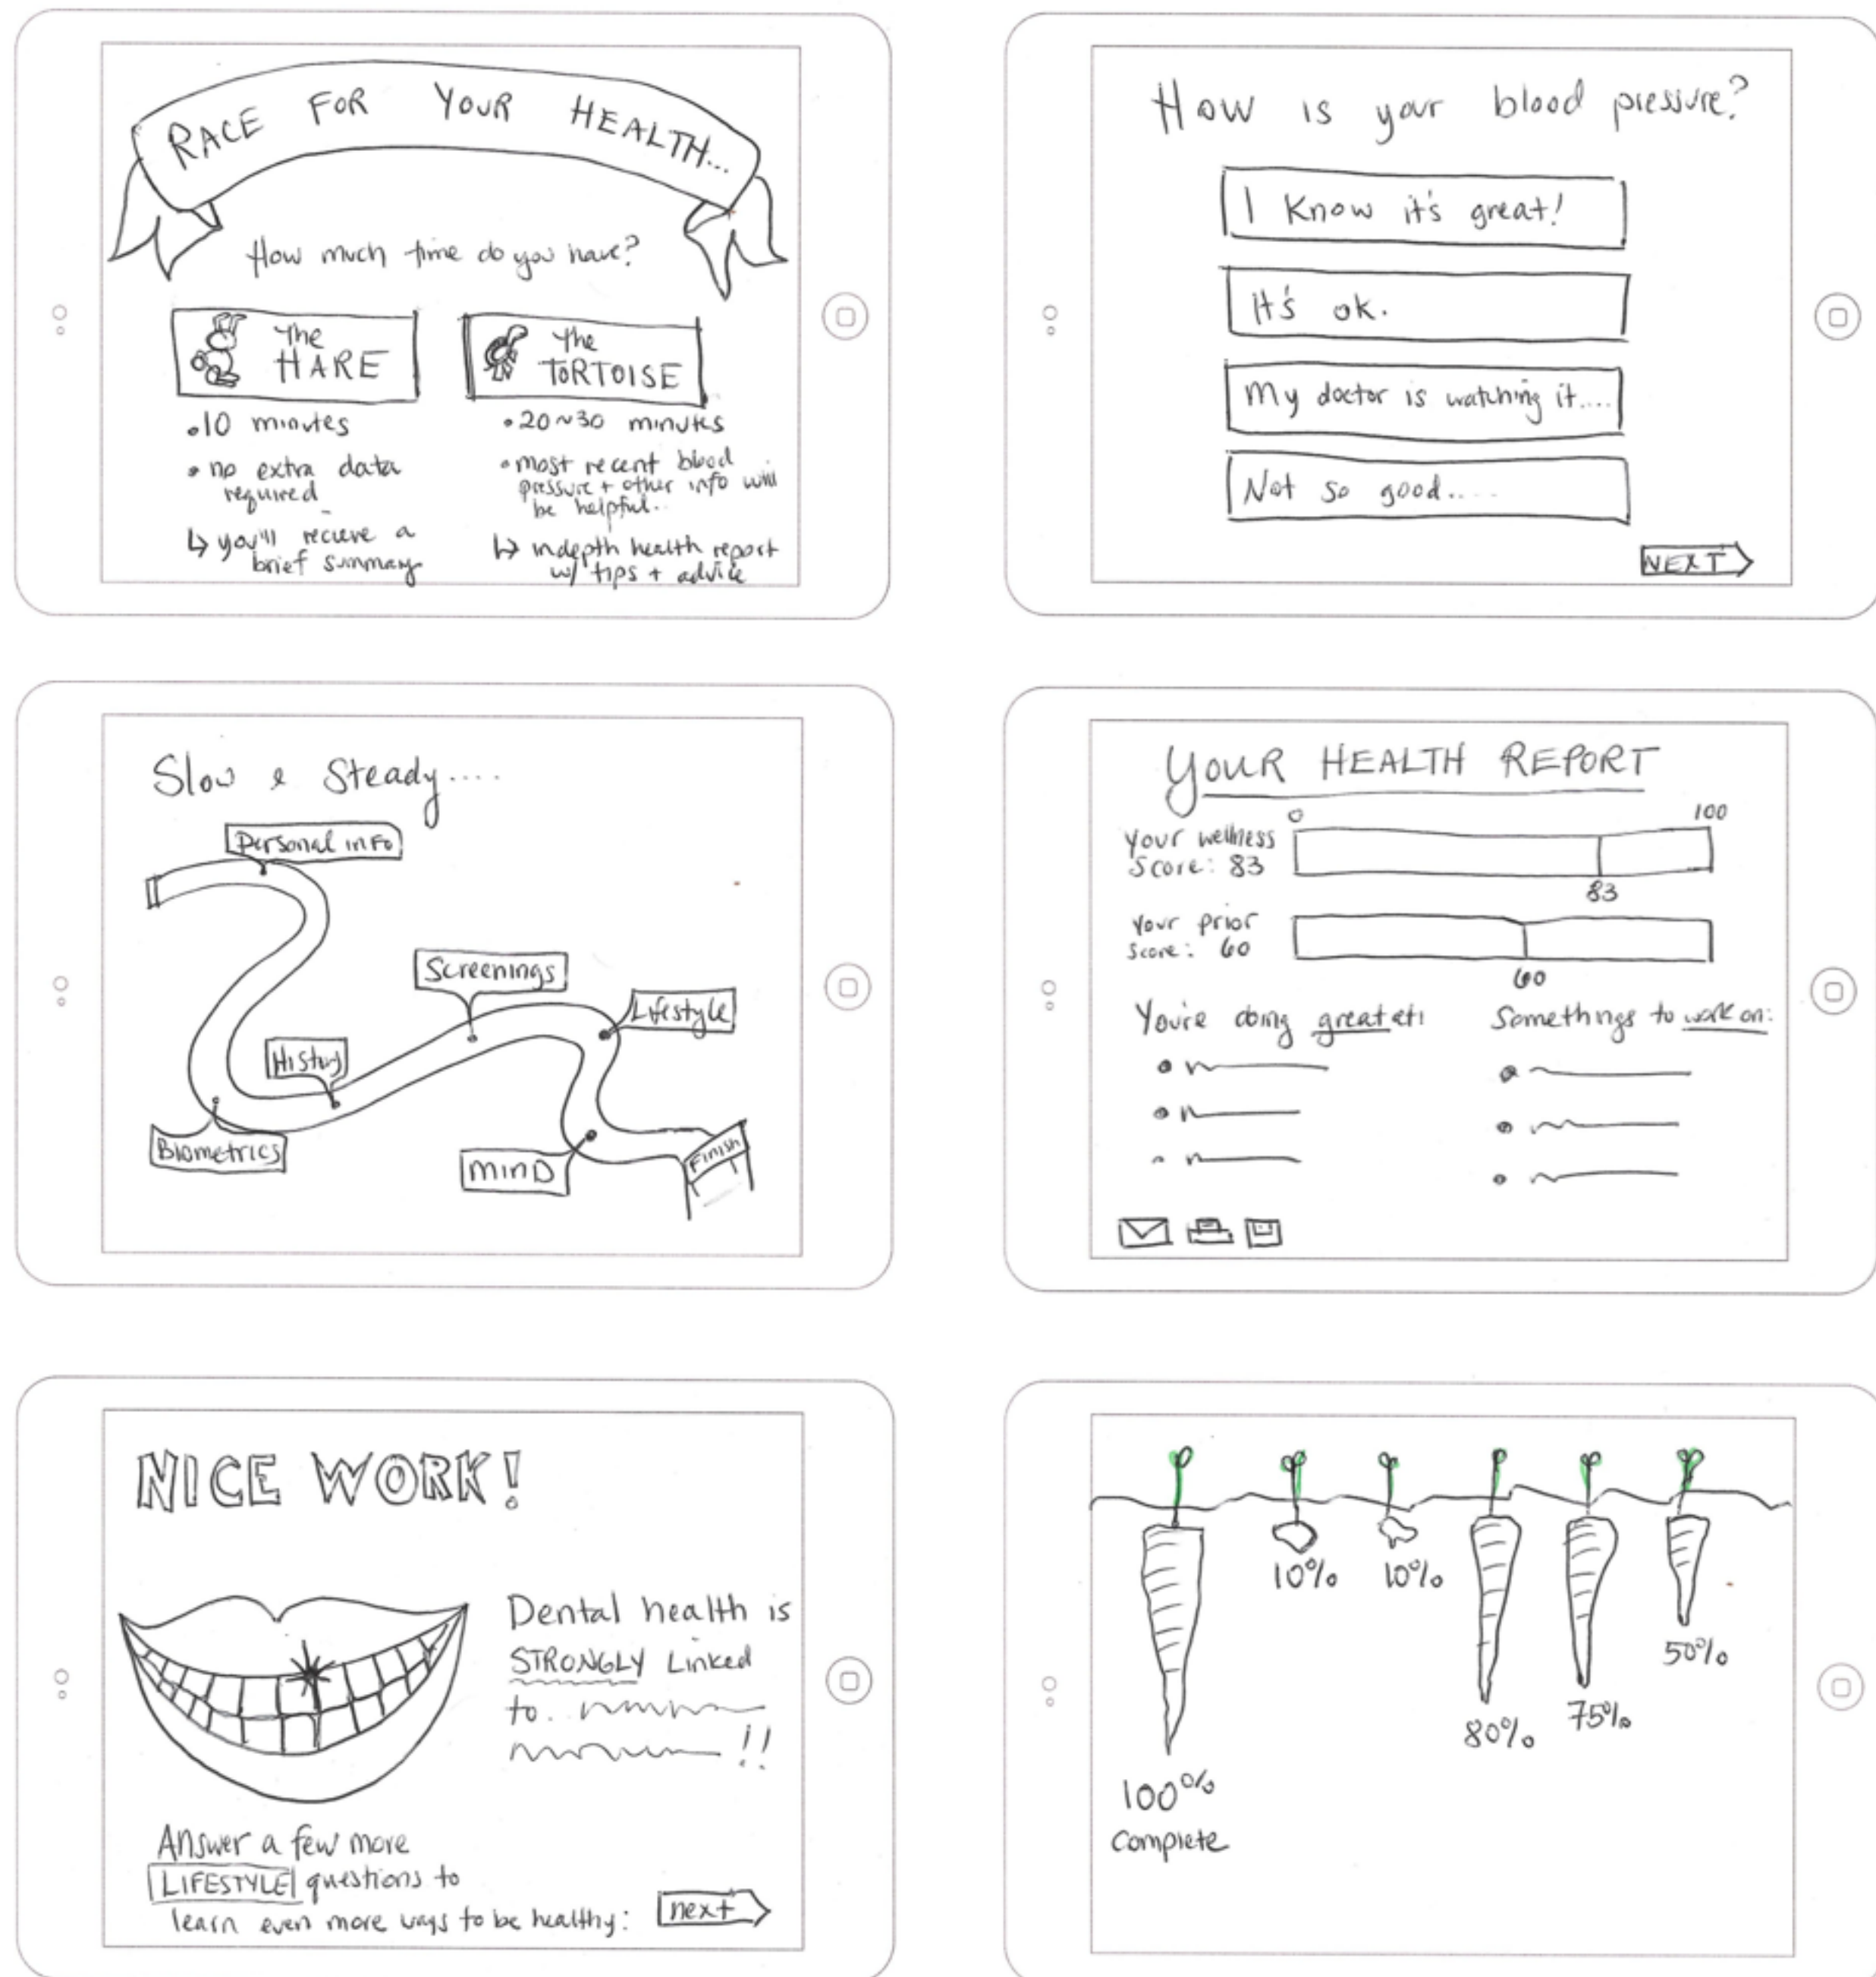 RACE FOR YOUR HEALTH...
How much time do you have?
The
HARE
• 10 minutes
• no extra data
required
↳ you'll recieve a
brief summary
The
TORTOISE
• 20~30 minutes
• most recent blood
pressure + other info will
be helpful..
↳ indepth health report
w/ tips + advice
How is your blood pressure?
I Know it's great!
It's ok.
My doctor is watching it....
Not so good.....
NEXT
Slow & Steady....
Personal info
Screenings
Lifestyle
History
Biometrics
MIND
Finish
YOUR HEALTH REPORT
0 100
Your wellness
Score: 83
83
Your prior
Score: 60
60
You're doing great at:
Somethings to work on:
NICE WORK!
Dental health is
STRONGLY Linked
to..
!!
Answer a few more
LIFESTYLE questions to
learn even more ways to be healthy:
next
10% 10%
50%
75%
80%
100%
Complete